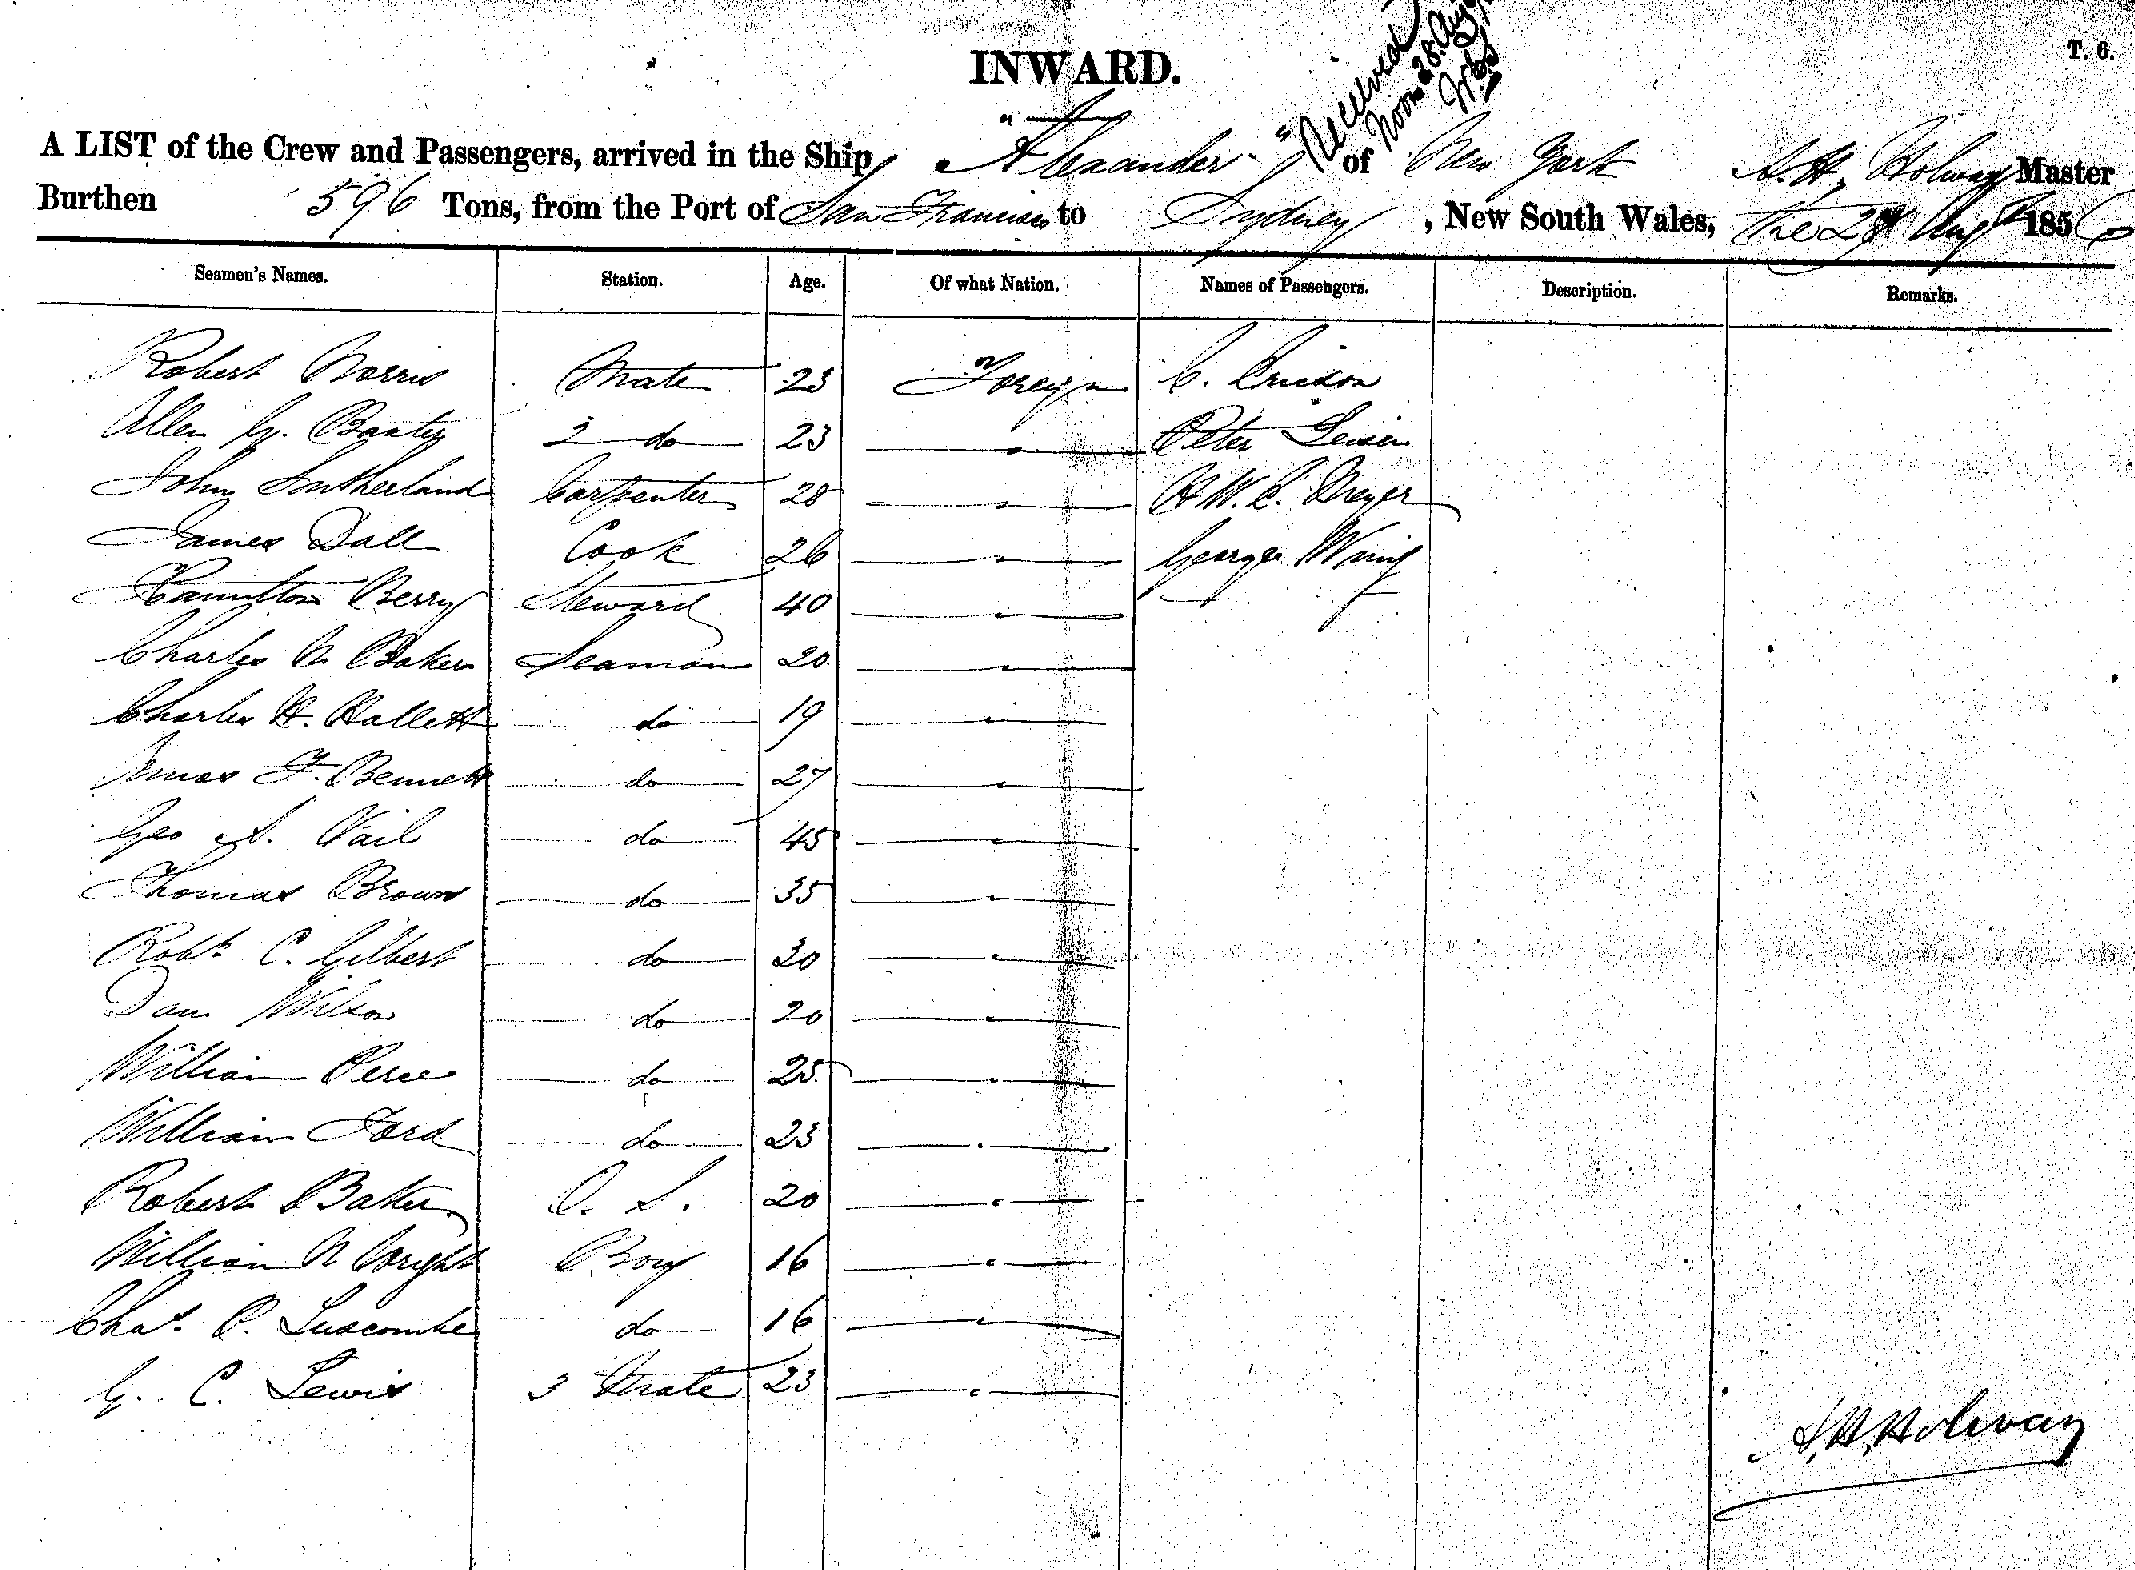 T. 6.
INWARD.
Received
Noon 28 Aug
A LIST of the Crew and Passengers, arrived in the Ship "Alexander" of New York A. H. Holway Master
Burthen 596 Tons, from the Port of San Francisco to Sydney, New South Wales, the 28 Augt 1856
Seamen's Names. Station. Age. Of what Nation. Names of Passengers. Description. Remarks.
Robert Norris Mate 23 Foreign C. Erickson
Allen G. Baxter 2 do 23 " Peter
John Sutherland Carpenter 28 " H. W. C. Dreyer
James Dall Cook 26 " George
Hamilton Berry Steward 40 "
Charles N Baker Seaman 20 "
Charles H. Hallett do 19 "
F. Bennett do 27 "
Geo A. Vail do 45 "
Thomas Brown do 35 "
Robt C. Gilbert do 30 "
Dan Wilson do 20 "
William Perce do 25 "
William Ford do 23 "
Robert Baker O. S. 20 "
William N Wright Boy 16 "
Chas. P. Luscombe do 16 "
G. C. Lewis 3 Mate 23 "
A. H. Holway